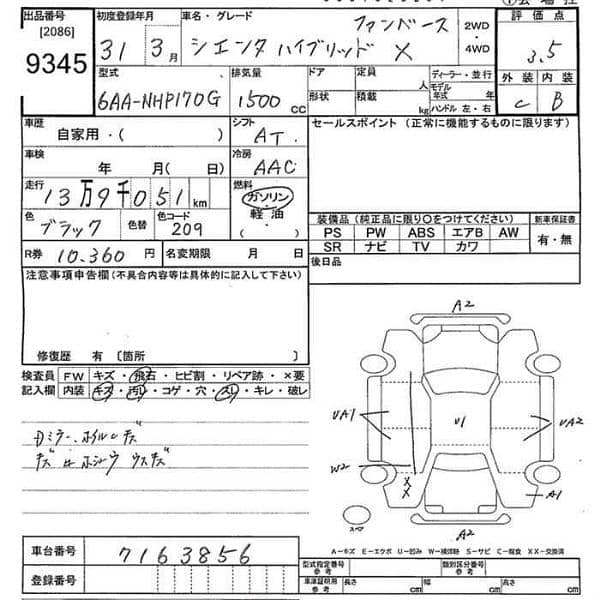 出品番号 初度登録年月 車名・グレード ファンベース 2WD 評価点
[2086] 31 3月 シエンタ ハイブリッド X ・4WD 3.5
9345 型式 排気量 ドア 定員 人 ディーラー・並行 外装 内装
6AA-NHP170G 1500cc 形状 積載 kg モデル年式 年 ハンドル 左・右 C B
車歴 自家用・( ) シフト AT セールスポイント(正常に機能するものに限ります)
車検 年 月( 日) 冷房 AAC
走行 13万9千051km 燃料 ガソリン・軽油・
色 ブラック 色替 色コード 209 装備品(純正品に限り○をつけてください) 新車保証書
R券 10.360円 名変期限 月 日 PS PW ABS エアB AW 有・無
SR ナビ TV カワ
注意事項申告欄(不具合内容等は具体的に記入して下さい) 後日品
修復歴 有〔箇所 〕
検査員 FW キズ・飛石・ヒビ割・リペア跡・×要
記入欄 内装 キズ・汚れ・コゲ・穴・スレ・キレ・破レ
A2
UA1 U1 UA2
W2 XX A1
スペア A2
A-キズ E-エクボ U-凹み W-補修跡 S-サビ C-腐食 XX-交換済
車台番号 7163856 型式指定番号 参考 類別区分番号 参考
登録番号 車庫証明用 参考 長さ cm 幅 cm 高さ cm